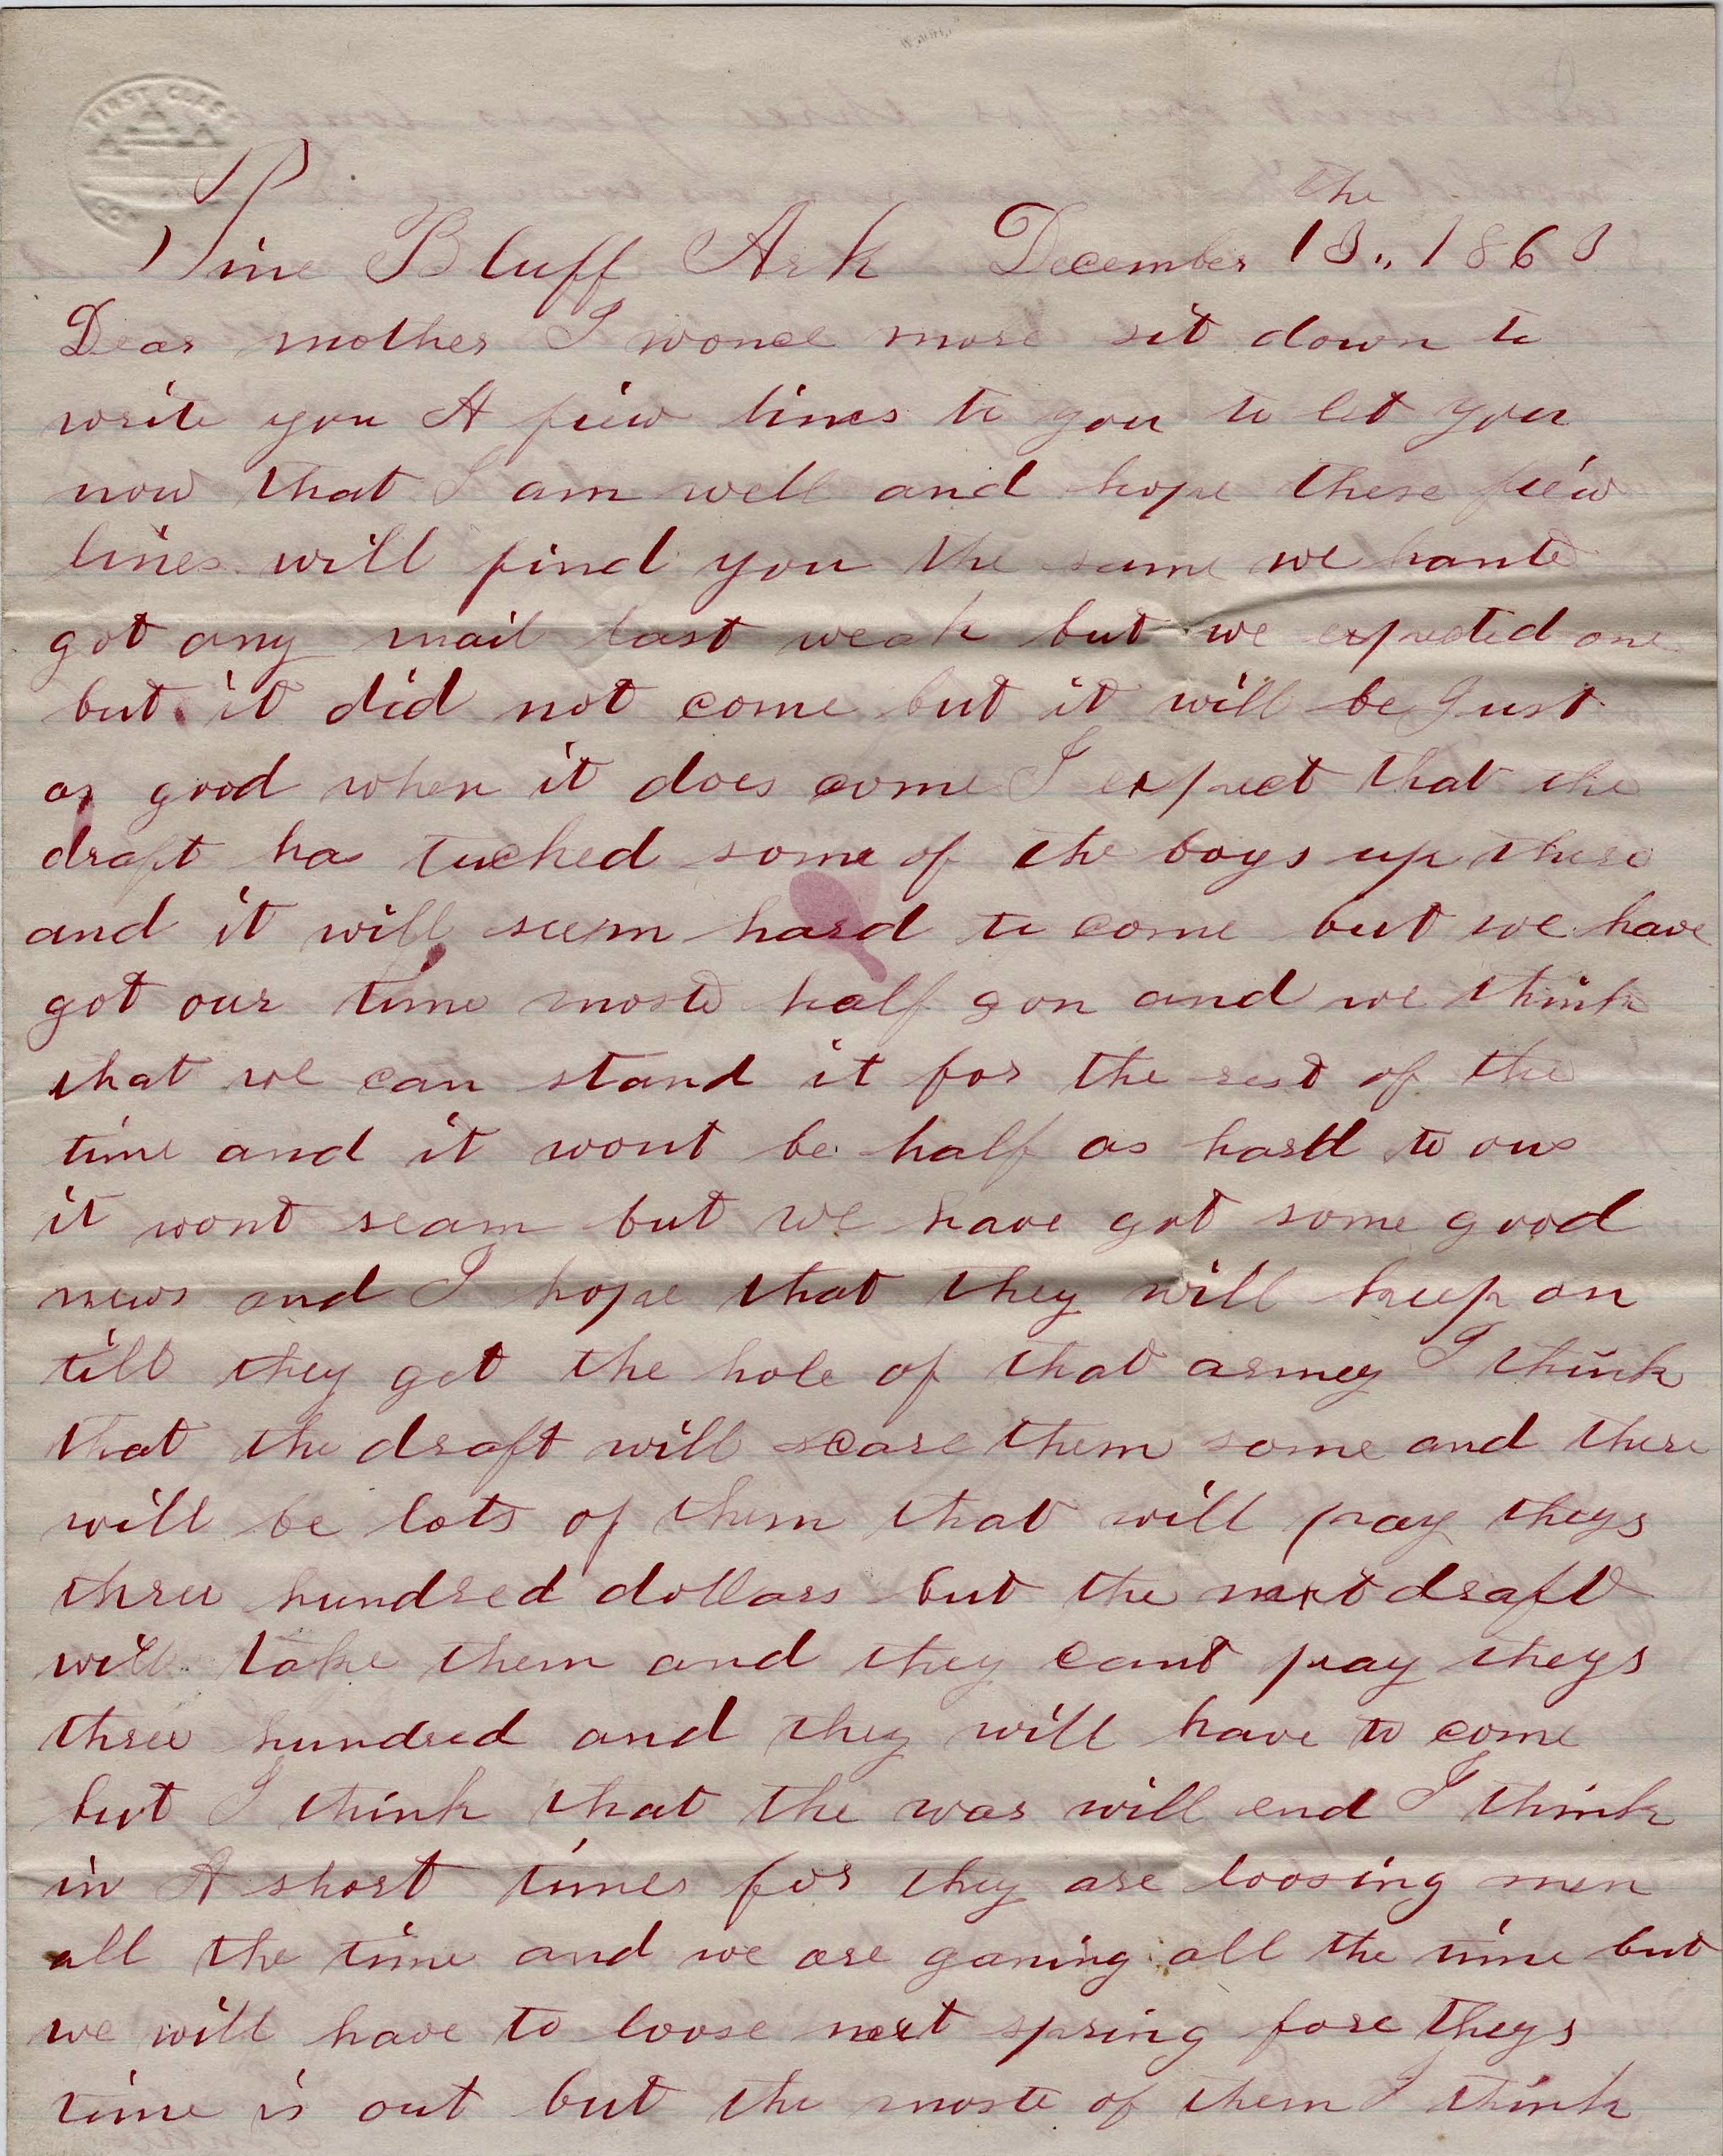 FIRST CLASS
the
Pine Bluff Ark December 13,, 1863
Dear mother I wonce more sit down to
write you A fiew lines to you to let you
now that I am well and hope these fiew
lines will find you the same we hante
got any mail last weak but we expected one
but it did not come but it will be Just
as good when it does come I expect that the
draft has tucked some of the boys up there
and it will seem hard to come but we have
got our time moste half gon and we think
that we can stand it for the rest of the
time and it wont be half as hard to ous
it wont seam but we have got some good
news and I hope that they will keep on
till they get the hole of that armey I think
that the draft will scare them some and there
will be lots of them that will pay theys
three hundred dollars but the next draft
will take them and they cant pay theys
three hundred and they will have to come
but I think that the war will end I think
in A short times for they are loosing men
all the time and we are ganing all the time but
we will have to loose next spring fore theys
time is out but the moste of them I think